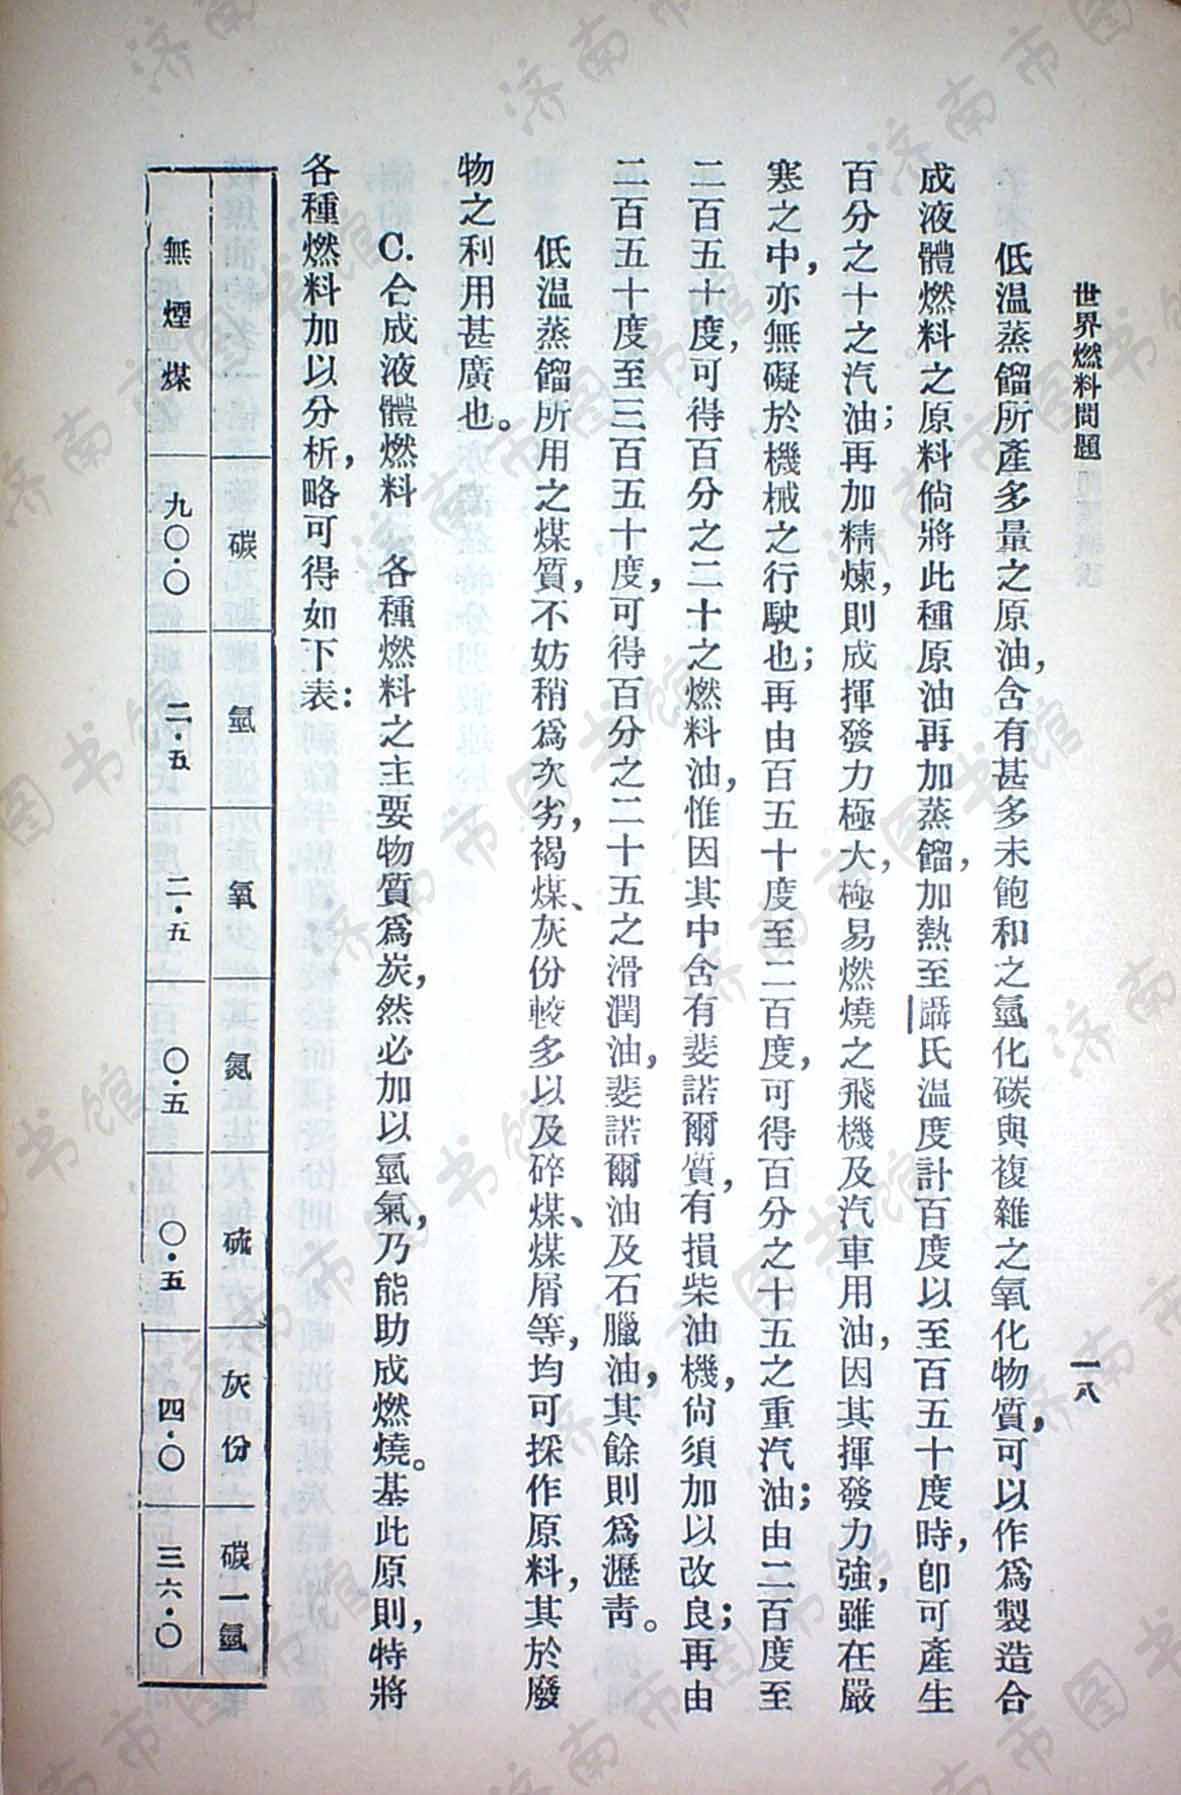 世界燃料問題
一八
低温蒸餾所產多量之原油，含有甚多未飽和之氫化碳與複雜之氧化物質，可以作爲製造合
成液體燃料之原料倘將此種原油再加蒸餾，加熱至䁤氏温度計百度以至百五十度時，卽可產生
百分之十之汽油；再加精煉，則成揮發力極大，極易燃燒之飛機及汽車用油，因其揮發力強，雖在嚴
寒之中，亦無礙於機械之行駛也；再由百五十度至二百度，可得百分之十五之重汽油；由二百度至
二百五十度，可得百分之二十之燃料油，惟因其中含有斐諾爾質，有損柴油機，尙須加以改良；再由
二百五十度至三百五十度，可得百分之二十五之滑潤油，斐諾爾油及石臘油，其餘則爲瀝靑。
低温蒸餾所用之煤質，不妨稍爲次劣，褐煤、灰份較多以及碎煤、煤屑等，均可採作原料，其於廢
物之利用甚廣也。
C.合成液體燃料　各種燃料之主要物質爲炭，然必加以氫氣，乃能助成燃燒。基此原則，特將
各種燃料加以分析，略可得如下表：
碳 氫 氧 氮 硫 灰份 碳—氫
無煙煤 九〇·〇 二·五 二·五 〇·五 〇·五 四·〇 三六·〇
济南市图书馆